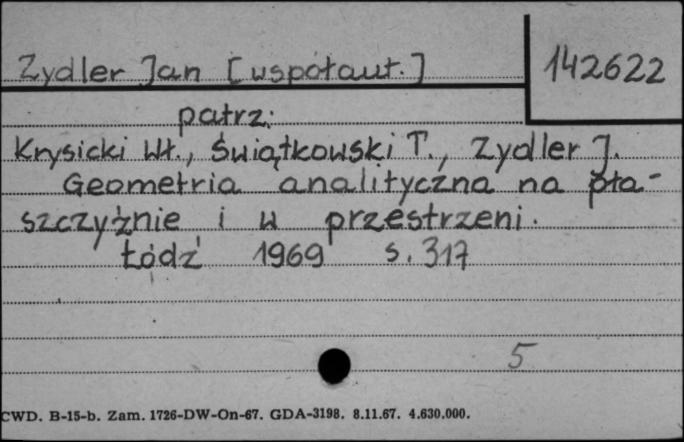 Zydler Jan [współaut.]
142622
patrz:
Krysicki Wł., Świątkowski T., Zydler J.
Geometria analityczna na pła-
szczyźnie i w przestrzeni.
Łódź 1969 s. 317
5
CWD. B-15-b. Zam. 1726-DW-On-67. GDA-3198. 8.11.67. 4.630.000.